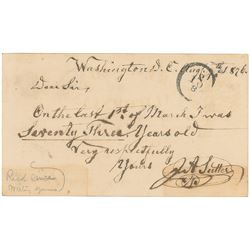 Washington D.C. 1876.
Dear Sir,
On the last 1st of March I was
Seventy Three Years old
Very respectfully
Yours
J. A. Sutter